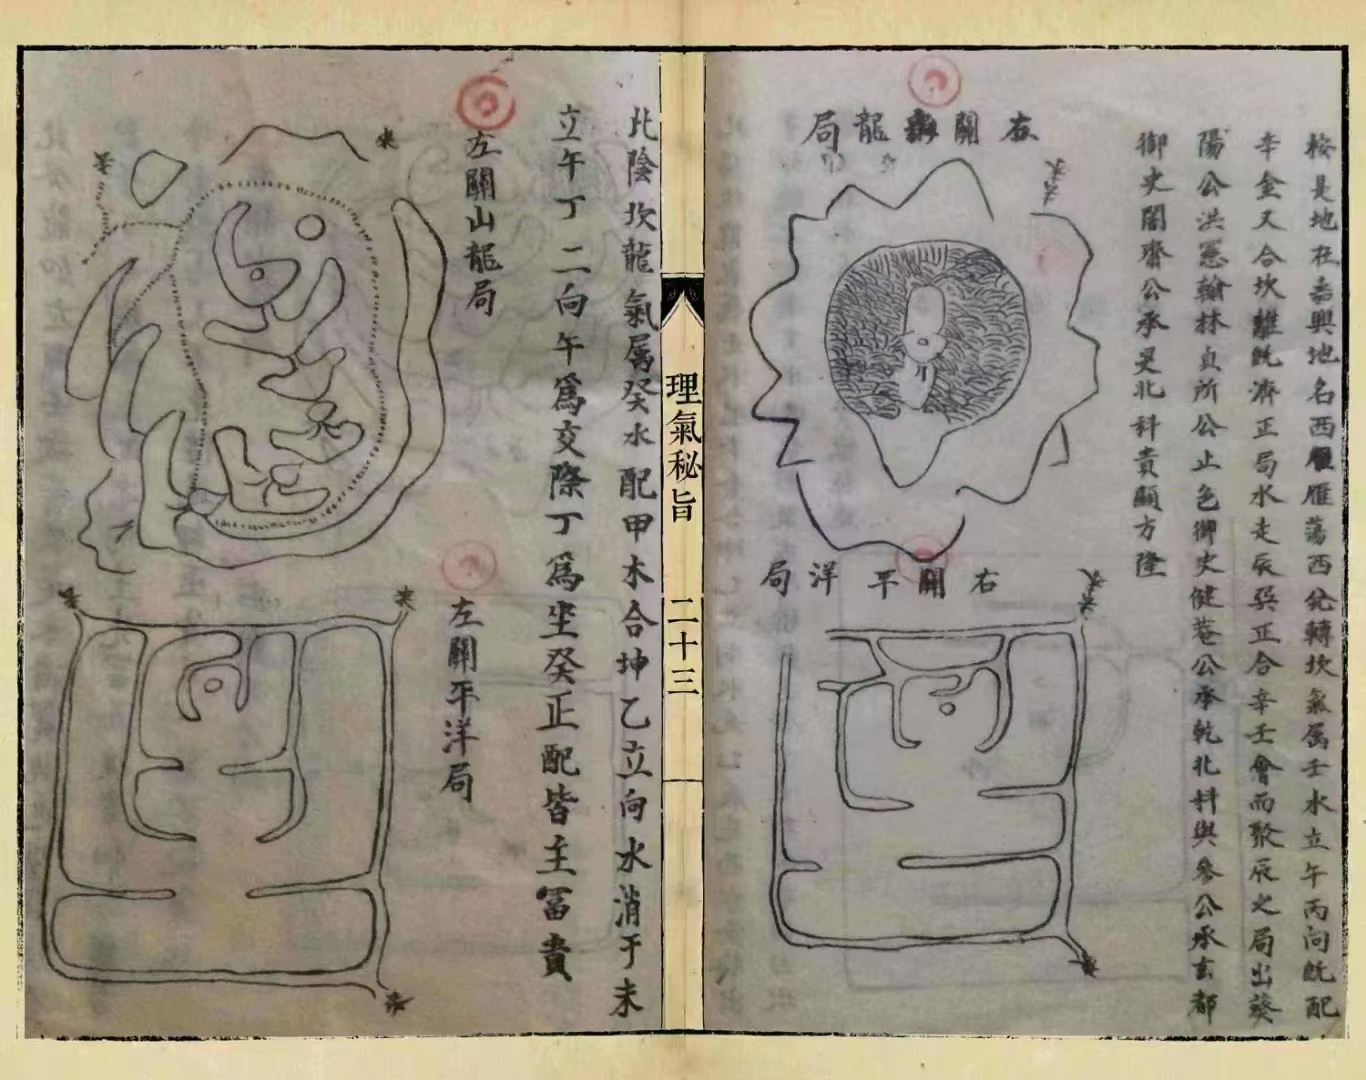 按是地在嘉興地名西雁雁蕩西兌轉坎氣属壬水立午丙向旣配
辛金又合坎離旣濟正局水走辰巽正合辛壬會而聚辰之局出葵
陽公洪憲翰林貞所公止色御史健菴公承乾北科與參公承玄都
御史闇齋公承昊北科貴顯方隆
右關龍局
右關平洋局
理氣秘旨
二十三
此陰坎龍氣属癸水配甲木合坤乙立向水消于未
立午丁二向午為交際丁為坐癸正配皆主冨貴
左關山龍局
來
左關平洋局
來